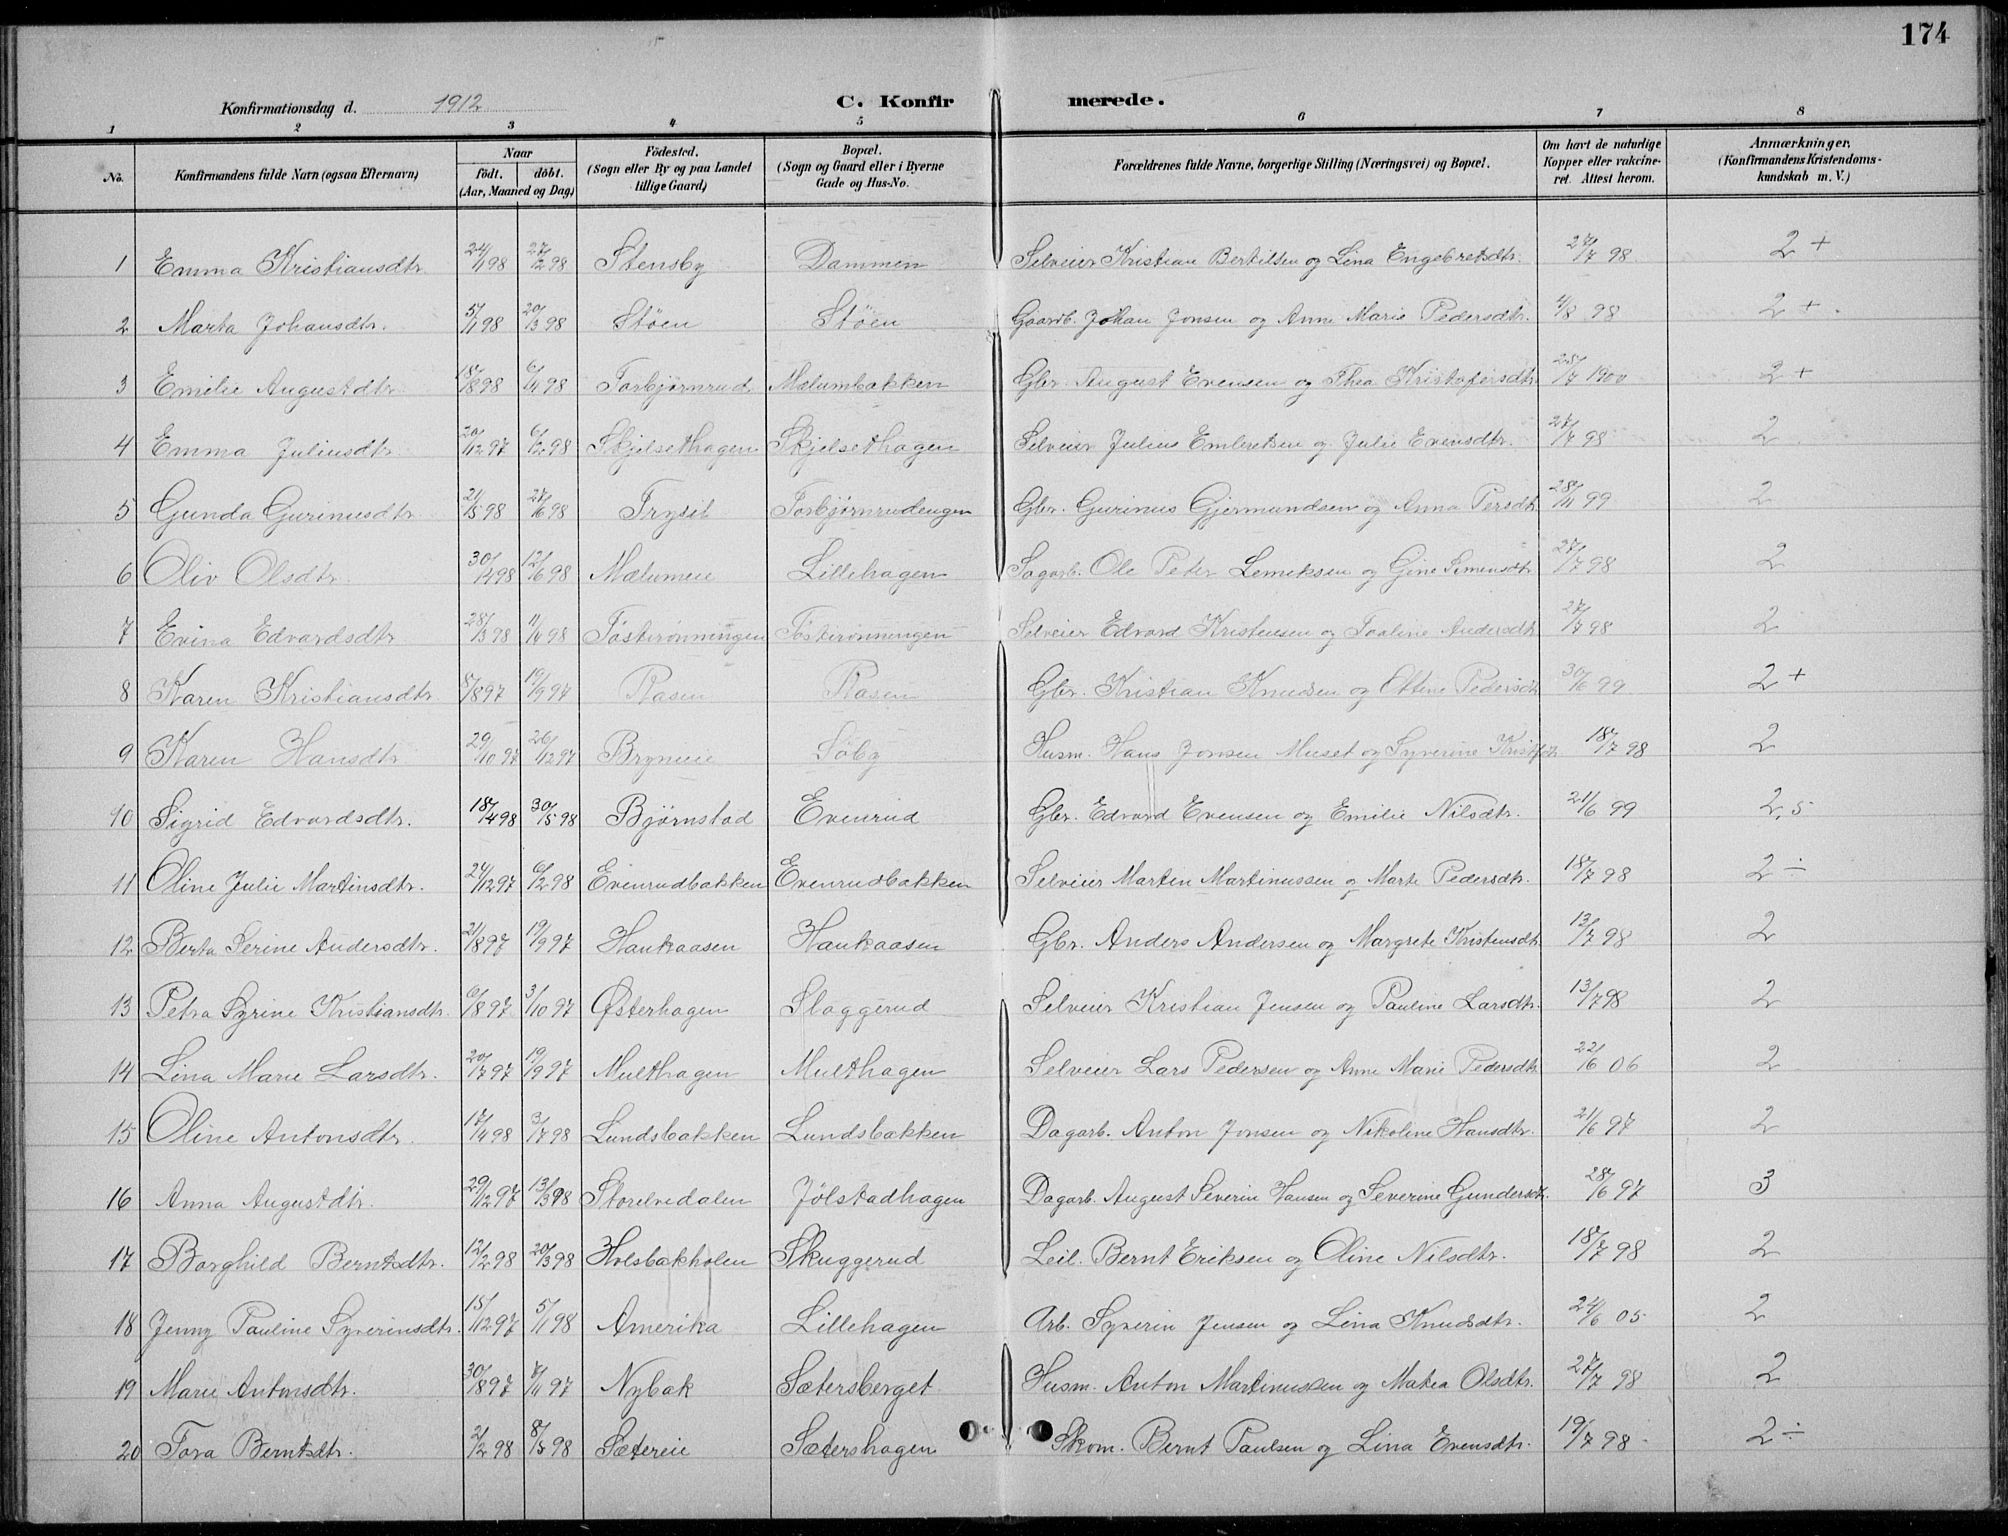 174
Konfirmationsdag d. 1912
C. Konfirmerede.
1 2 3 4 5 6 7 8
No. Konfirmandens fulde Navn (ogsaa Efternavn) Naar født. døbt. (Aar, Maaned og Dag) Fødested. (Sogn eller By og paa Landet tillige Gaard) Bopæl. (Sogn og Gaard eller i Byerne Gade og Hus-No. Forældrenes fulde Navne, borgerlige Stilling (Næringsvei) og Bopæl. Om havt de naturlige Kopper eller vakcineret. Attest herom. Anmærkninger. (Konfirmandens Kristendomskundskab m. V.)
1 Emma Kristiansdtr. 24/1 98 27/2 98 Stensby Dammen Selveier Kristian Bertilsen og Lina Engebretsdtr. 27/7 98 2+
2 Marta Johansdtr. 5/1 98 20/3 98 Støen Støen Gaardb. Johan Jonsen og Anne Marie Pedersdtr. 4/8 98 2+
3 Emilie Augustdtr. 18/8 98 6/11 98 Torbjørnrud Mælumbakken Gbr. August Evensen og Thea Kristofersdtr 28/7 1900 2+
4 Emma Juliusdtr. 20/12 97 6/2 98 Skjelsethagen Skjelsethagen Selveier Julius Embretsen og Julie Evensdtr. 27/7 98 2
5 Gunda Gurinusdtr 21/5 98 27/6 98 Trysil Torbjørnrudengen Gbr. Gurinus Gjermundsen og Anna Persdtr 28/11 99 2
6 Oliv Olsdtr. 30/4 98 12/6 98 Mælumeie Lillehagen Sagarb. Ole Peter Lemiksen og Gine Simensdtr 27/7 98 2
7 Evina Edvardsdtr 28/3 98 11/4 98 Tøstirønningen Tøstirønningen Selveier Edvard Kristensen og Taaline Andersdtr 27/7 98 2
8 Karen Kristiansdtr. 8/8 97 19/9 97 Rasen Rasen Gbr. Kristian Knudsen og Ettine Pedersdtr 30/6 99 2+
9 Karen Hansdtr 29/10 97 26/12 97 Bryneie Søby Husm. Hans Jonsen Muset og Syverine Kristofer 18/7 98 2
10 Sigrid Edvardsdtr. 18/4 98 30/5 98 Bjørnstad Evenrud Gbr. Edvard Evensen og Emilie Nilsdtr. 21/6 99 2,5
11 Oline Julie Martinsdtr. 24/12 97 6/2 98 Evenrudbakken Evenrudbakken Selveier Marten Martinussen og Marte Pedersdtr. 18/7 98 2 ÷
12 Berta Serine Andersdtr. 21/8 97 19/9 97 Haukaasen Haukaasen Gbr. Anders Andersen og Margrete Kristensdtr 13/7 98 2
13 Petra Syrine Kristiansdtr. 6/8 97 3/10 97 Østerhagen Slaggerud Selveier Kristian Jensen og Pauline Larsdtr. 13/7 98 2
14 Lina Marie Larsdtr. 20/7 97 19/9 97 Multhagen Multhagen Selveier Lars Pedersen og Anne Marie Pedersdtr 22/6 06 2
15 Oline Antonsdtr. 17/4 98 3/7 98 Lundsbakken Lundsbakken Dagarb. Anton Jonsen og Nikoline Hansdtr. 21/6 97 2
16 Anna Augustdtr. 29/12 97 13/3 98 Storelvedalen Jølstadhagen Dagarb. August Severin Hansen og Severine Gundersdtr. 28/6 97 3
17 Borghild Berntsdtr. 12/2 98 20/3 98 Holsbakholen Skuggerud Leil. Bernt Eriksen og Oline Nilsdtr. 18/7 98 2
18 Jenny Pauline Syverinsdtr. 15/12 97 5/1 98 Amerika Lillehagen Arb. Syverin Jensen og Lina Knudsdtr. 24/6 05 2
19 Marie Antonsdtr. 30/8 97 7/11 97 Nybak Sætersberget Husm. Anton Martinussen og Matea Olsdtr. 27/7 98 2
20 Tora Berntsdtr. 2/2 98 8/5 98 Sætereie Sætershagen Skom. Bernt Paulsen og Lina Evensdtr. 19/7 98 2 ÷